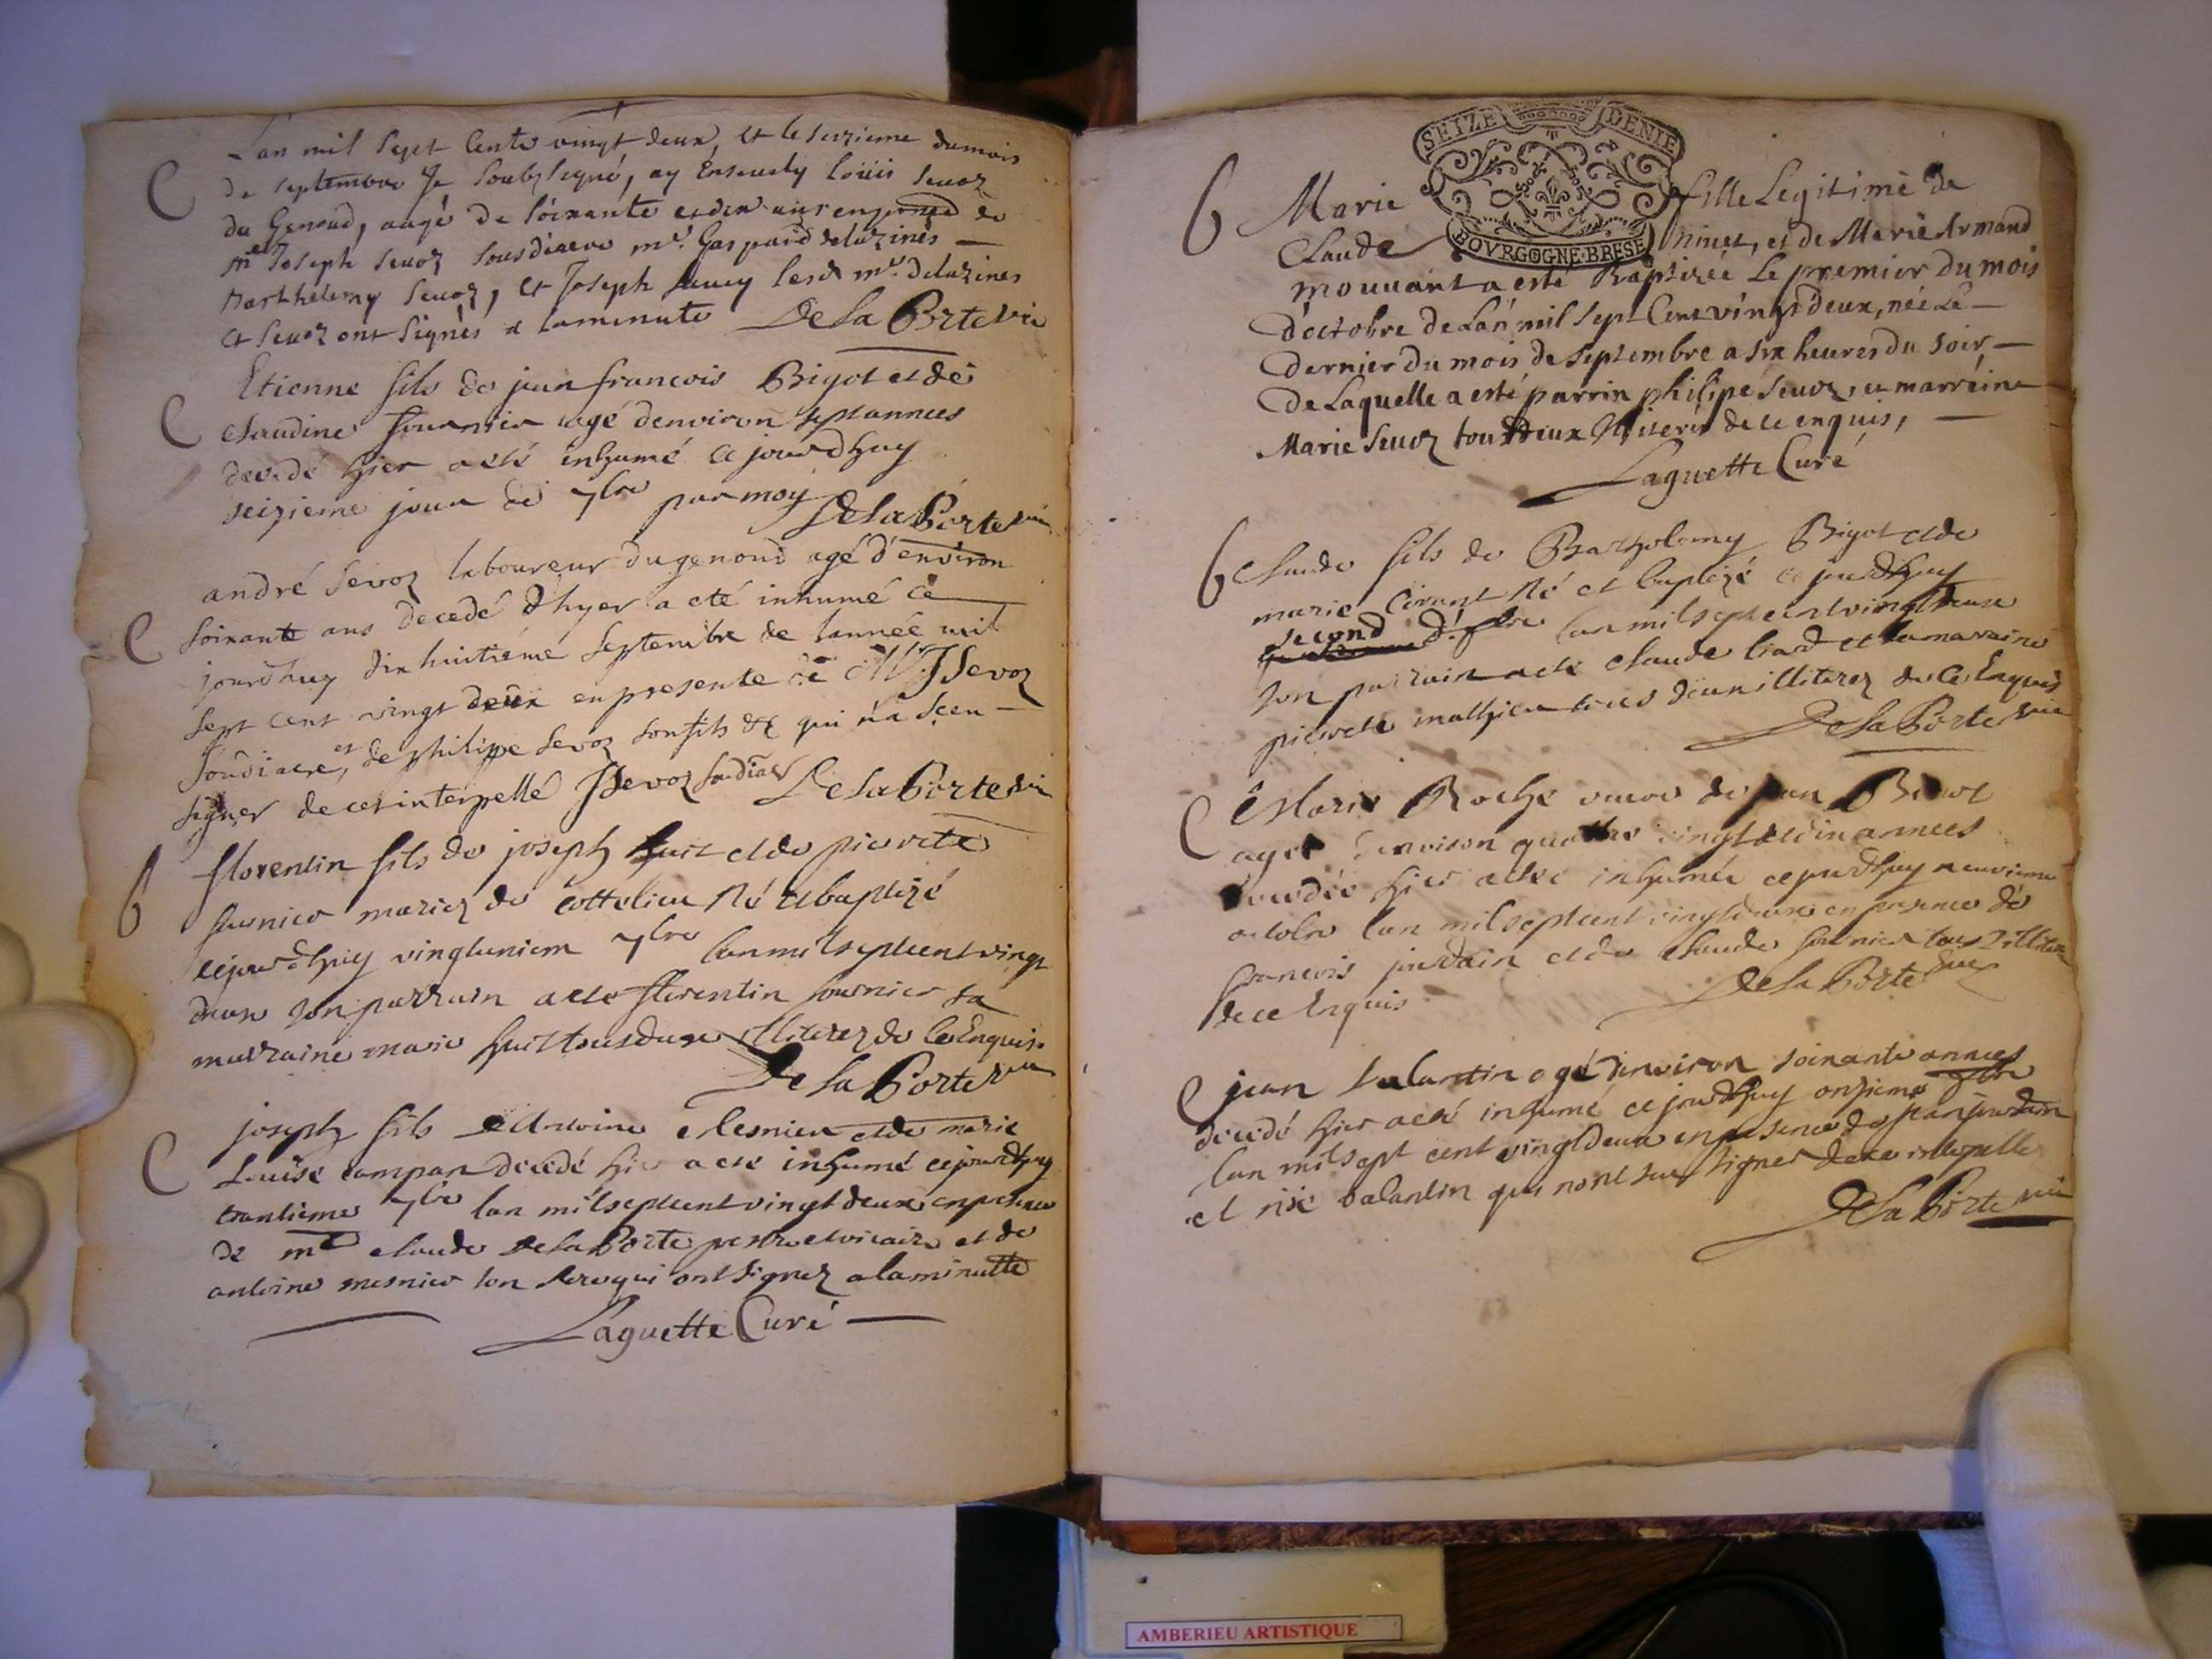 L'an mil sept cents vingt deux, et le seizieme du mois
de septembre Je soubsigné, ay enseuely loüis seuoz
du Genoud, aagé de soixante et dix ans en presence de
Mre Joseph seuoz sousdiacre mr. Gaspard deluzines
Barthelemy seuoz, et Joseph lesd mrs. deluzines
et seuoz ont signés a la minute De la Porte vic
C
Etienne fils de jean francois Bigot et de
claudine fournier agé denviron sept années
decedé hier a eté inhumé ce jourdhuy
seizieme jour de 7bre par moy
De la Porte vic
C
andré sevoz laboureur du genoud agé d'environ
soixante ans decedé d'hyer a eté inhumé ce
jourd'huy dix huitiéme septembre de l'année mil
sept cent vingt deux en presente de Mre J Sevoz
soudiacre, et de philippe sevoz son fils qui n'a sceu
signer de ce interpellé J Sevoz soudiac De la Porte vic
C
florentin fils de joseph huit et de pierrete
fournier mariez de cottelieu né et baptizé
cejourdhuy vingtuniem 7bre lan mil sept cent vingt
deux son parrain a eté florentin fournier sa
marraine marie huit tous deux illiterez de ce Enquis.
De la Porte vic
6
joseph fils d'Antoine Mesnier et de marie
Louise decedé hier a eté inhumé cejourdhuy
trantieme 7bre lan mil sept cent vingt deux en presence
de mre claude De la Porte prestre et vicaire et de
antoine mesnier son qui ont signez a la minutte
Laguette Curé
C
SEIZE DENIE
BOVRGOGNE·BRESE
6 Marie fille Legitime de
Claude Ninet, et de Marie Armand
mouuant a esté Baptizeé Le premier du mois
d'octobre de L'an mil sept Cent vingt deux, neé Le
dernier du mois de septembre a six heures du soir
de Laquelle a esté parrin philipe seuoz, et marréine
Marie seuoz tous deux illiterés de ce enquis,
Laguette Curé
6 Claude fils de Bartholemy Bigot et de
marie né et baptizé ce jourdhuy
second d'8bre lan mil sept cent vingt deux
son parrain a eté claude liard et la maraine
pierrete mathieu tous deux illiterez de ce Enquis
De la Porte vic
C Marie Roche veuve de jean
ageé denviron quattre vingt et dix années
decedée hier a eté inhumée cejourdhuy neuvieme
octobre lan mil sept cent vingt deux en presence de
francois jourdain et de claude fournier tous 2 illiterez
de ce Enquis De la Porte vic
C jean valantin agé d'environ soixante années
decedé hier a eté inhumé ce jourdhuy onzieme 8bre
lan mil sept cent vingt deux en presence de jean jourdain
et valantin qui n'ont sceu signer de ce interpellé
De la Porte vic
AMBERIEU ARTISTIQUE